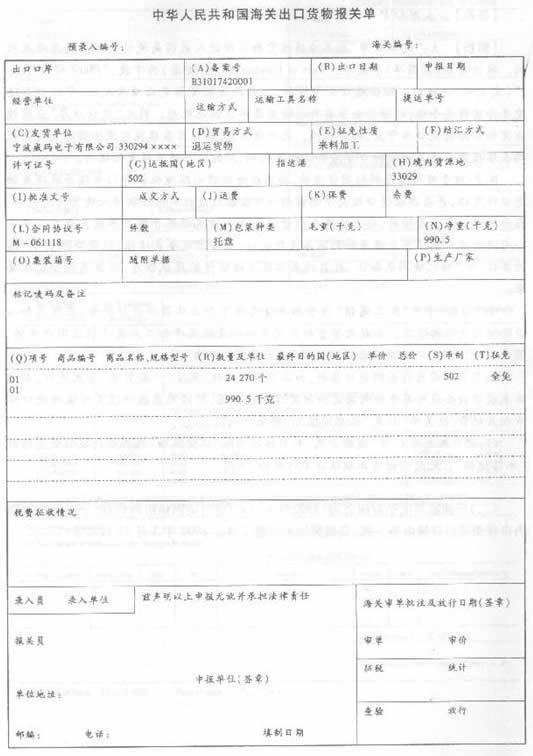 中华人民共和国海关出口货物报关单
预录入编号： 海关编号：
出口口岸 (A)备案号 (B)出口日期 申报日期
B31017420001
经营单位 运输方式 运输工具名称 提运单号
(C)发货单位 (D)贸易方式 (E)征免性质 (F)结汇方式
宁波威玛电子有限公司 330294×××× 退运货物 来料加工
许可证号 (C)运抵国(地区) 指运港 (H)境内货源地
502 33029
(I)批准文号 成交方式 (J)运费 (K)保费 杂费
(L)合同协议号 件数 (M)包装种类 毛重(千克) (N)净重(千克)
M-061118 托盘 990.5
(O)集装箱号 随附单据 (P)生产厂家
标记唛码及备注
(Q)项号 商品编号 商品名称、规格型号 (R)数量及单位 最终目的国(地区) 单价 总价 (S)币制 (T)征免
01 24 270 个 502 全免
01
990.5 千克
税费征收情况
录入员 录入单位 兹声明以上申报无讹并承担法律责任 海关审单批注及放行日期(签章)
报关员 审单 审价
申报单位(签章) 征税 统计
单位地址：
查验 放行
邮编： 电话： 填制日期